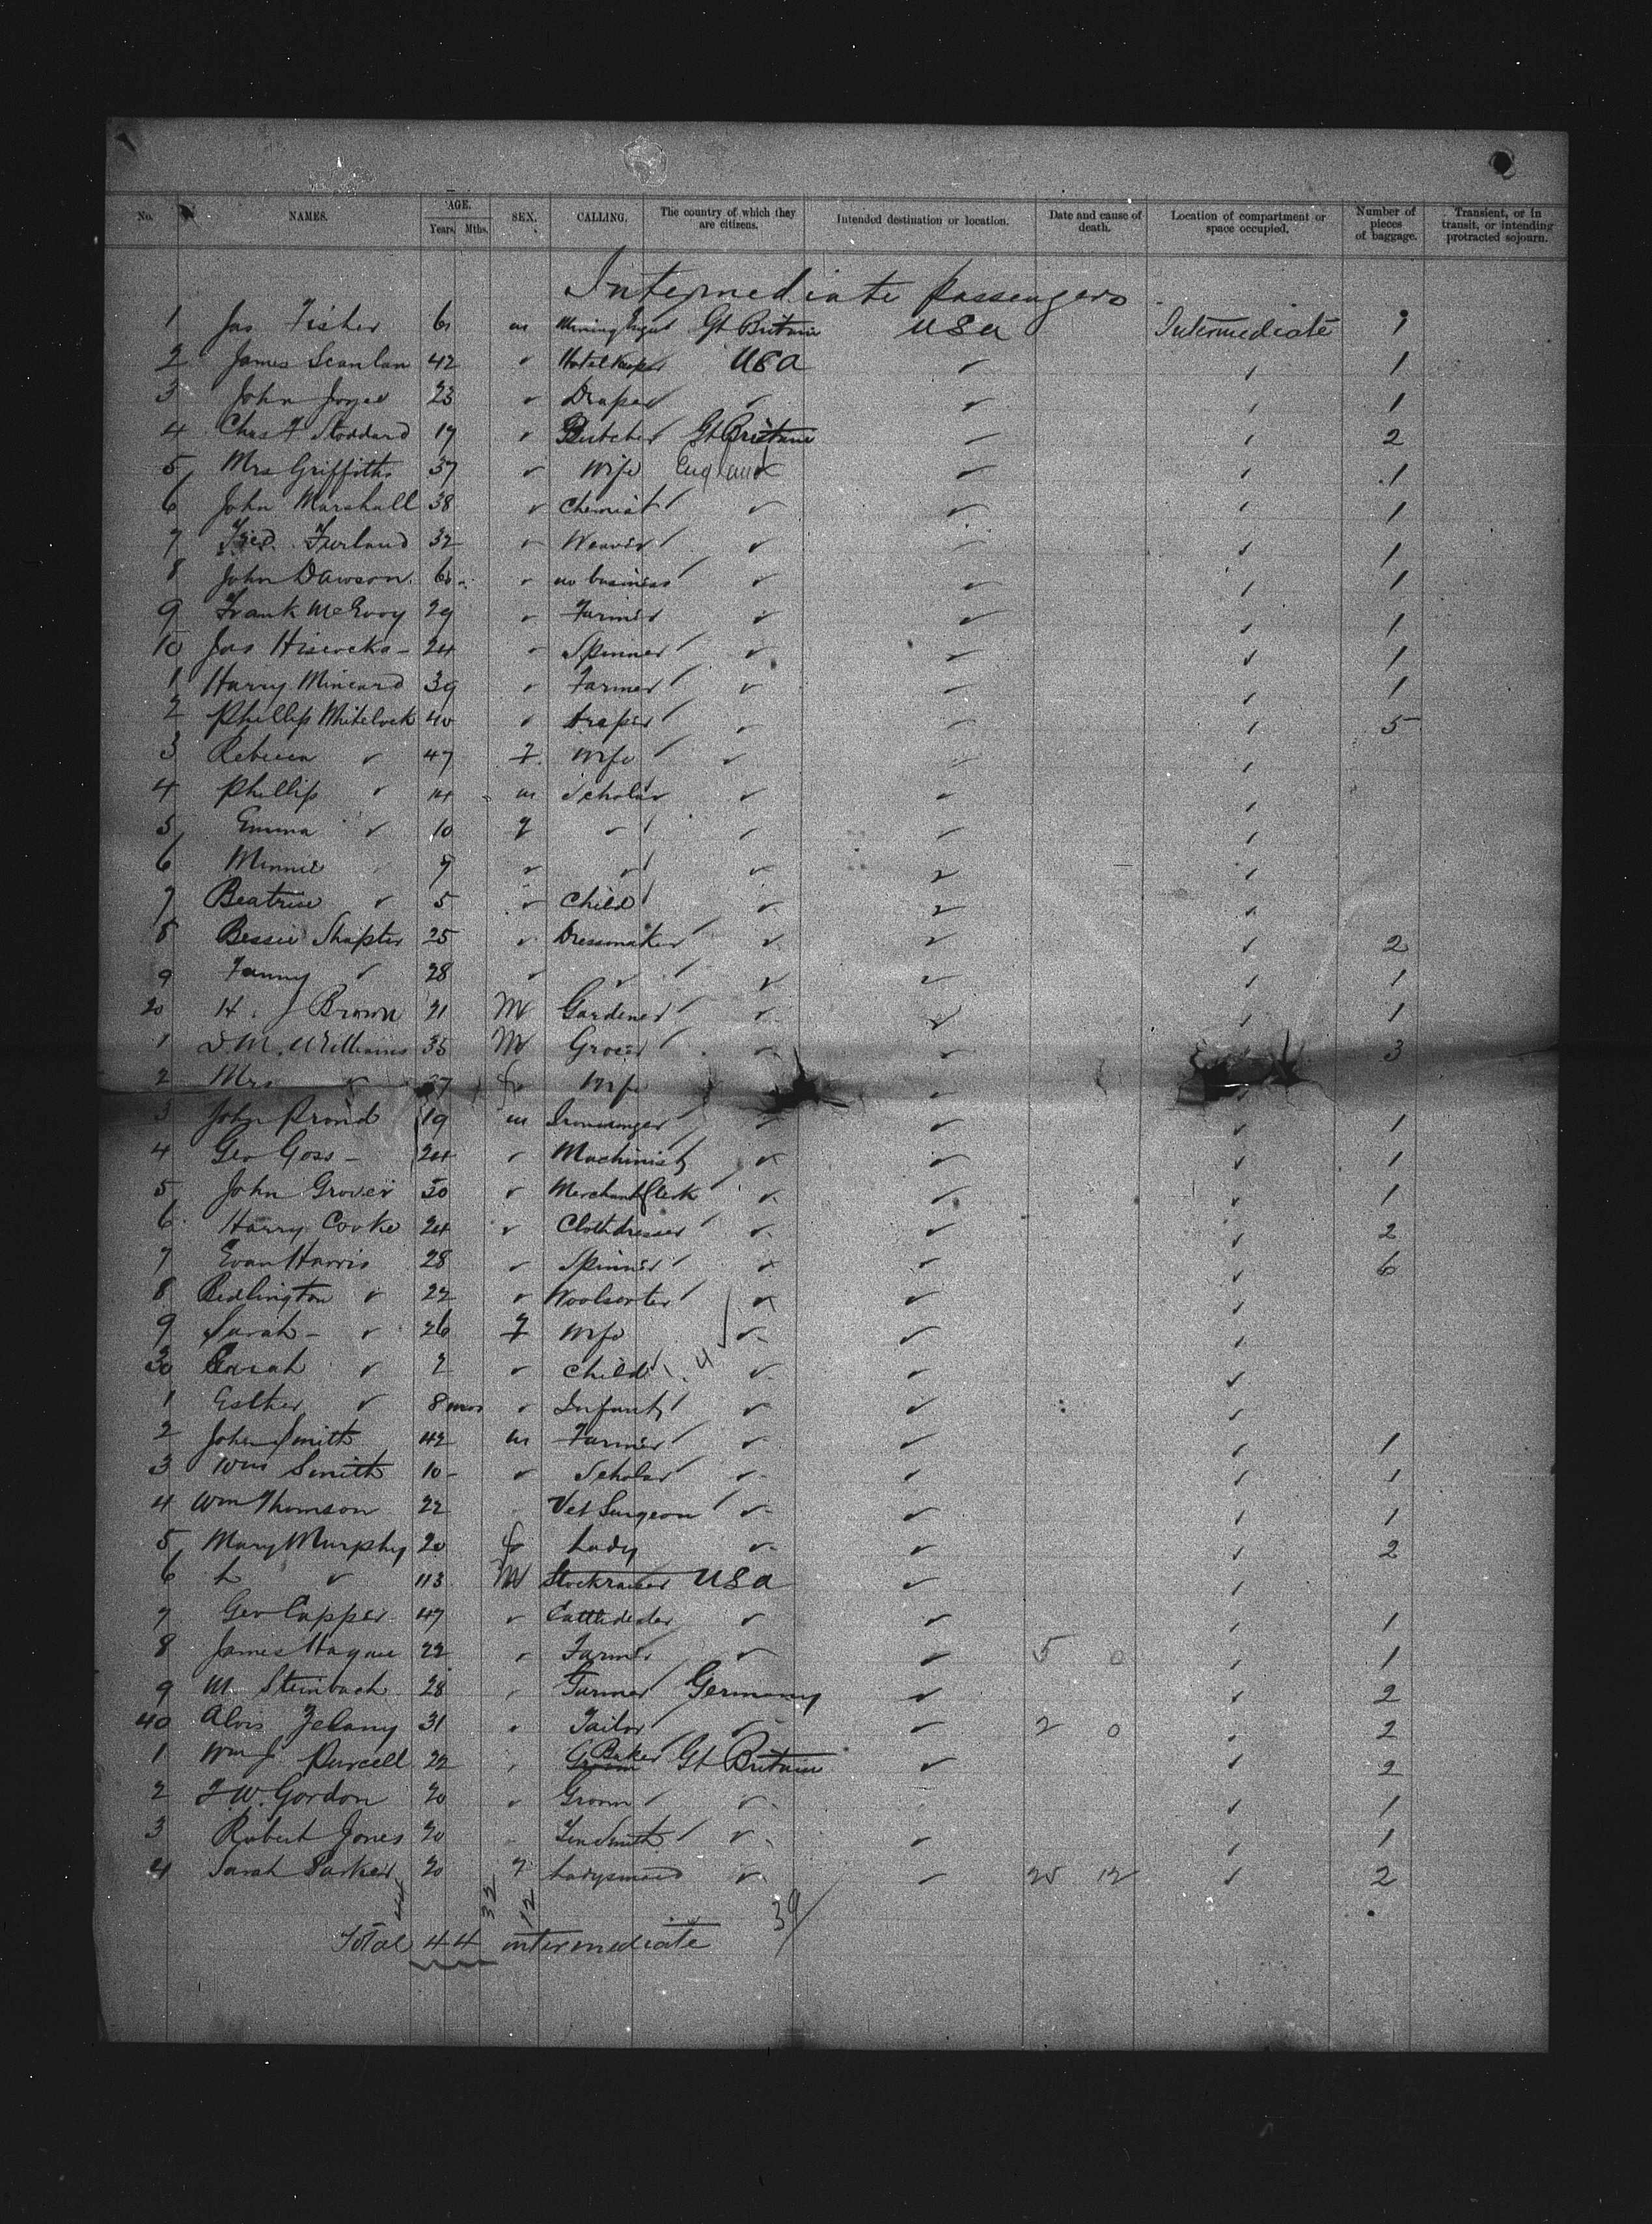 No. NAMES. AGE. Years. Mths. SEX. CALLING. The country of which they are citizens. Intended destination or location. Date and cause of death. Location of compartment or space occupied. Number of pieces of baggage. Transient, or in transit, or intending protracted sojourn.
Intermediate passengers
1 Jas Fisher 61 m Gt Britain USA Intermediate 1
2 James Scanlan 42 ✓ Hotel Keeper USA ✓ ✓ 1
3 John Joyce 23 ✓ Draper ✓ ✓ ✓ 1
4 Chas F Stoddard 19 ✓ Butcher Gt Britain ✓ ✓ 2
5 Mrs Griffiths 37 ✓ Wife England ✓ ✓ 1
6 John Marshall 38 ✓ Chemist ✓ ✓ ✓ 1
7 Fred. Furland 32 ✓ Weaver ✓ ✓ ✓ 1
8 John Dawson 60 ✓ no business ✓ ✓ ✓ 1
9 Frank McEvoy 29 ✓ Farmer ✓ ✓ ✓ 1
10 Jas Hiscocks 24 ✓ Spinner ✓ ✓ ✓ 1
1 Harry Mineard 39 ✓ Farmer ✓ ✓ ✓ 1
2 Phillip Whitelock 40 ✓ draper ✓ ✓ ✓ 5
3 Rebecca ✓ 47 F. Wife ✓ ✓ ✓
4 Phillip ✓ 14 m Scholar ✓ ✓ ✓
5 Emma ✓ 10 F ✓ ✓ ✓ ✓
6 Minnie ✓ 9 ✓ ✓ ✓ ✓ ✓
7 Beatrice ✓ 5 ✓ Child ✓ ✓ ✓
8 Bessie Shapter 25 ✓ Dressmaker ✓ ✓ ✓ 2
9 Fanny ✓ 28 ✓ ✓ ✓ ✓ ✓ 1
20 H. J Brown 21 M Gardener ✓ ✓ ✓ 1
1 D. M. Williams 35 M Grocer ✓ ✓ 3
2 Mrs ✓ 37 f Wife ✓ ✓
3 John Prond 19 m Ironmonger ✓ ✓ ✓ 1
4 Geo Goss 24 ✓ Machinist ✓ ✓ ✓ 1
5 John Grover 30 ✓ Merchant Clerk ✓ ✓ ✓ 1
6 Harry Cooke 24 ✓ Clothdresser ✓ ✓ ✓ 2
7 Evan Harris 28 ✓ Spinner ✓ ✓ ✓ 6
8 Bedlington ✓ 22 ✓ Woolsorter ✓ ✓ ✓
9 Sarah ✓ 26 F Wife ✓ ✓ ✓
30 Sarah ✓ 2 ✓ child 4 ✓ ✓ ✓
1 Esther ✓ 8 mos ✓ Infant ✓ ✓ ✓
2 John Smith 42 m Farmer ✓ ✓ ✓ 1
3 Wm Smith 10 ✓ Scholar ✓ ✓ ✓ 1
4 Wm Thomson 22 Vet Surgeon ✓ ✓ ✓ 1
5 Mary Murphy 20 f Lady ✓ ✓ ✓ 2
6 L ✓ 43 M Stockraiser USA ✓ ✓
7 Geo Capper 47 ✓ Cattledealer ✓ ✓ ✓ 1
8 James Hague 22 ✓ Farmer ✓ ✓ 5 0 ✓ 1
9 M Steinbach 28 ✓ Farmer Germany ✓ ✓ 2
40 Alois Zelany 31 ✓ Tailor ✓ ✓ 2 0 ✓ 2
1 Wm J. Purcell 22 ✓ Groom Baker Gt Britain ✓ ✓ 2
2 F. W. Gordon 20 ✓ Groom ✓ ✓ 1
3 Robert Jones 20 Tin Smith ✓ ✓ ✓ 1
4 Sarah Parker 20 F Ladysmaid ✓ ✓ 25 12 ✓ 2
44 32 12 39
Total 44 intermediate